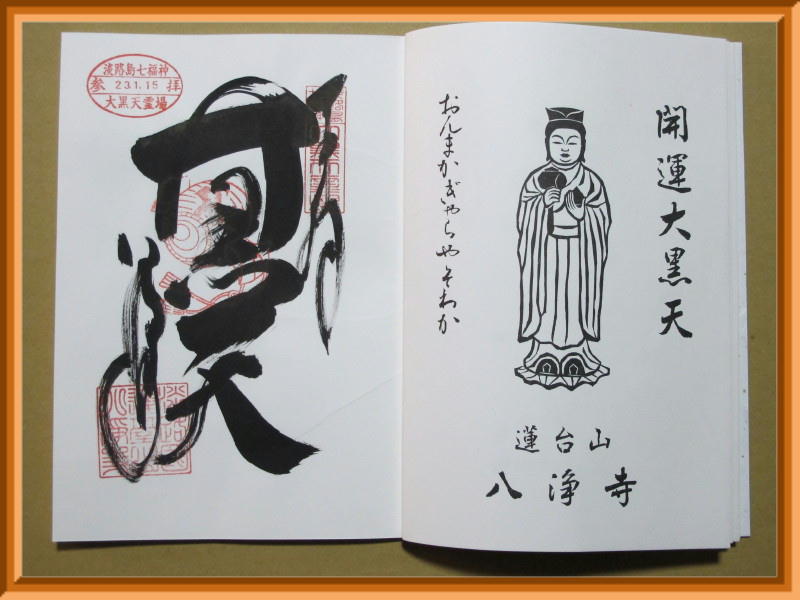 淡路島七福神
参 23.1.15 拝
大黒天霊場
奉拝
大黒天
八浄寺
開運大黒天
おんまかぎゃらやそわか
蓮台山
八浄寺